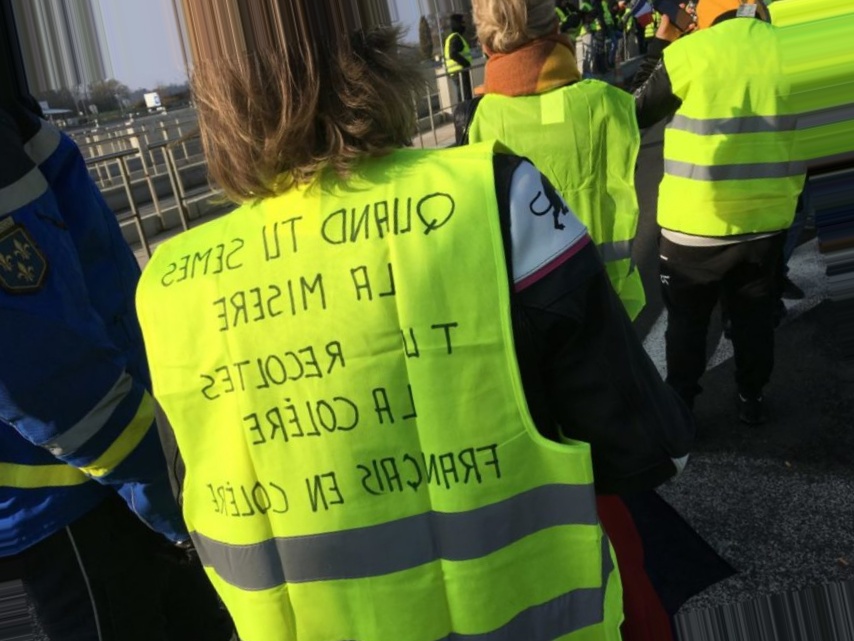 QUAND TU SEMES
LA MISERE
TU RECOLTES
LA COLÉRE
FRANÇAIS EN COLÉRE